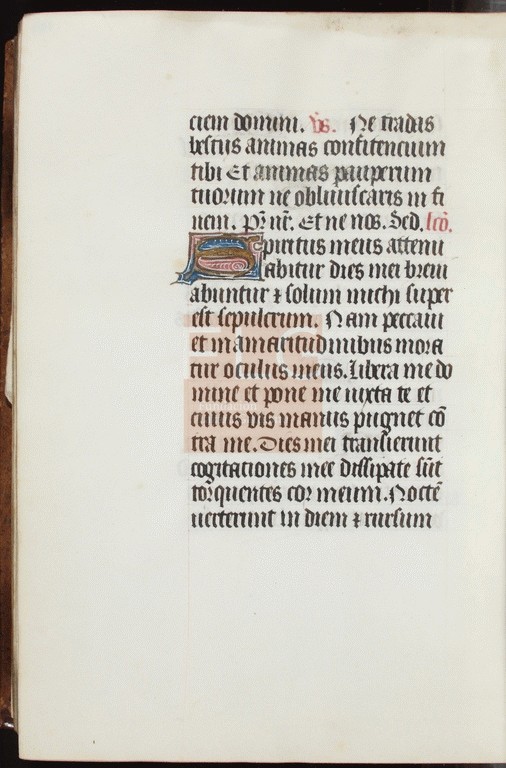 ciem domini. v̄s. Ne tradas
bestiis animas confitencium
tibi Et animas pauperum
tuorum ne obliuiscaris in fi
nem. Pr̄ nr̄. Et ne nos. Sed. lcō.
Spiritus meus attenu
abitur dies mei breui
abuntur ⁊ solum michi super
est sepulcrum. Nam peccaui
et in amaritudinibus mora
tur oculus meus. Libera me do
mine et pone me iuxta te et
cuius vis manus pugnet cō
tra me. Dies mei transierunt
cogitationes mee dissipate sūt
torquentes cor meum. Noctē
uerterunt in diem ⁊ rursum